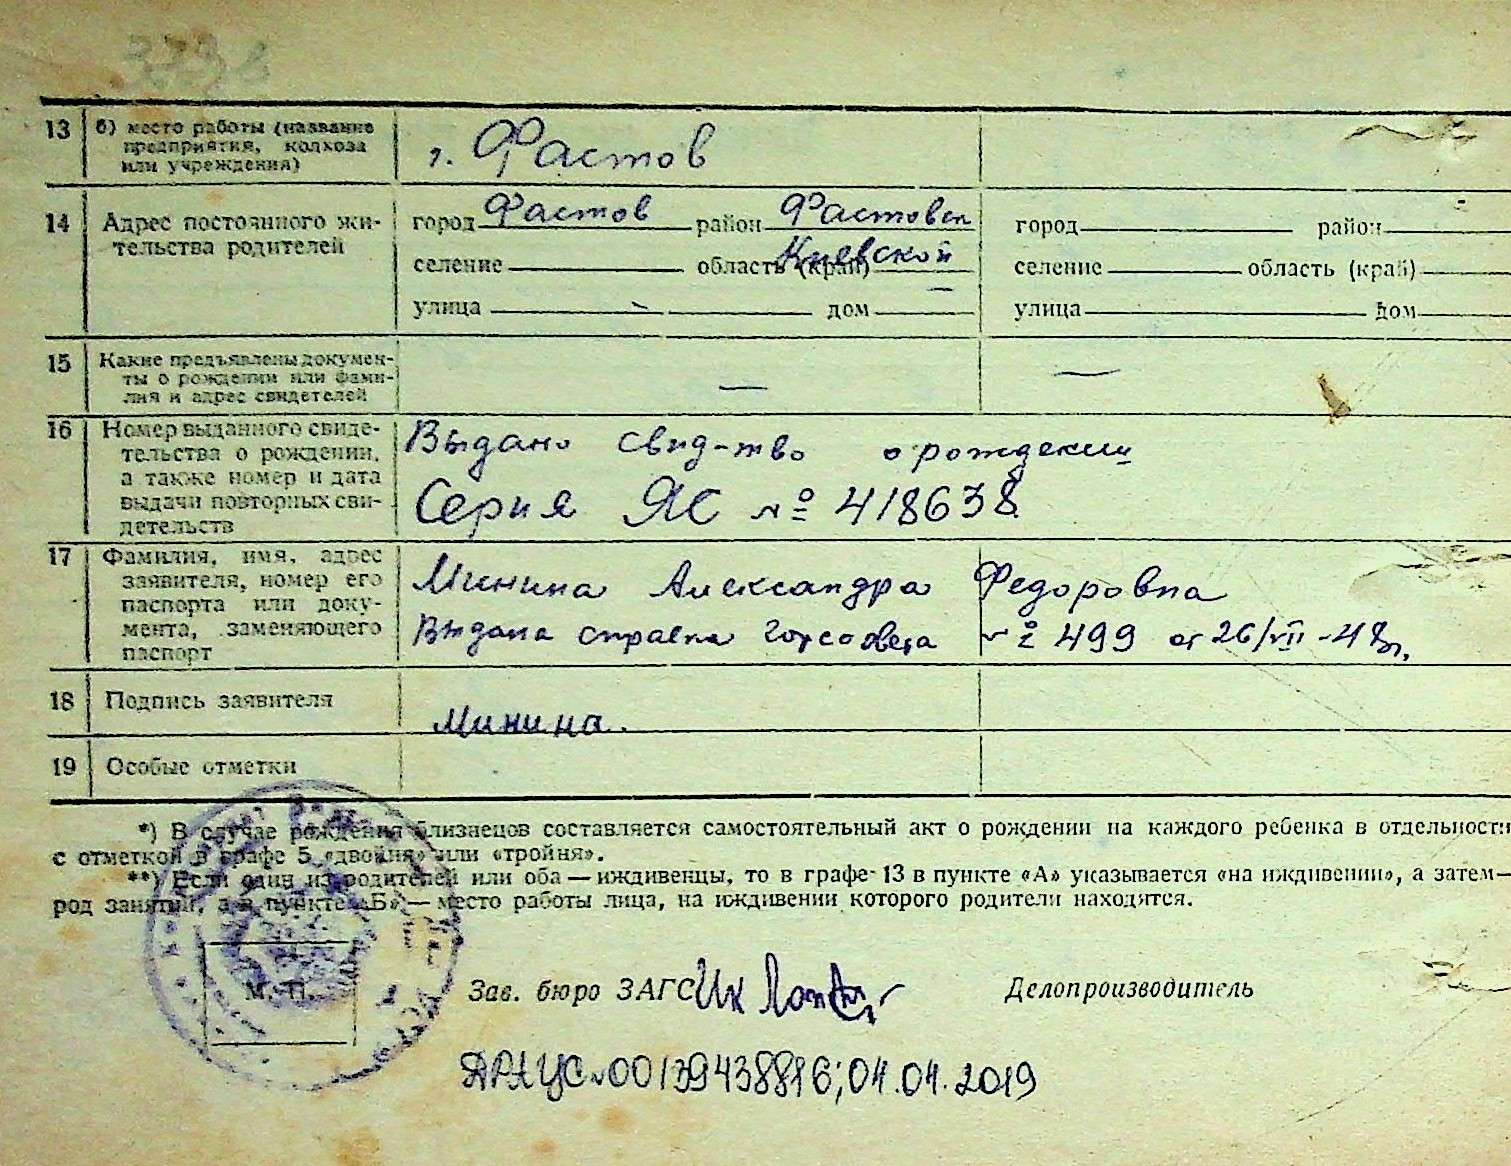 13 б) место работы (название
предприятия, колхоза
или учреждения)
г. Фастов
14 Адрес постоянного жи-
тельства родителей
город Фастов район Фастовск
селение область (край) Киевской
улица — дом —
город район
селение область (край)
улица дом
15 Какие предъявлены докумен-
ты о рождении или фами-
лия и адрес свидетелей
— —
16 Номер выданного свиде-
тельства о рождении,
а также номер и дата
выдачи повторных сви-
детельств
Выдано свид-тво о рождении
Серия ЯС № 418638
17 Фамилия, имя, адрес
заявителя, номер его
паспорта или доку-
мента, заменяющего
паспорт
Минина Александра Федоровна
Выдана справка горсовета № 499 от 26/VII-48г.
18 Подпись заявителя
Минина.
19 Особые отметки
*) В случае рождения близнецов составляется самостоятельный акт о рождении на каждого ребенка в отдельности
с отметкой в графе 5 «двойня» или «тройня».
**) Если один из родителей или оба — иждивенцы, то в графе 13 в пункте «А» указывается «на иждивении», а затем—
род занятий, а в пункте «Б» — место работы лица, на иждивении которого родители находятся.
М. П.
Зав. бюро ЗАГС
Делопроизводитель
ДРАЦС №00139438816; 04.04.2019